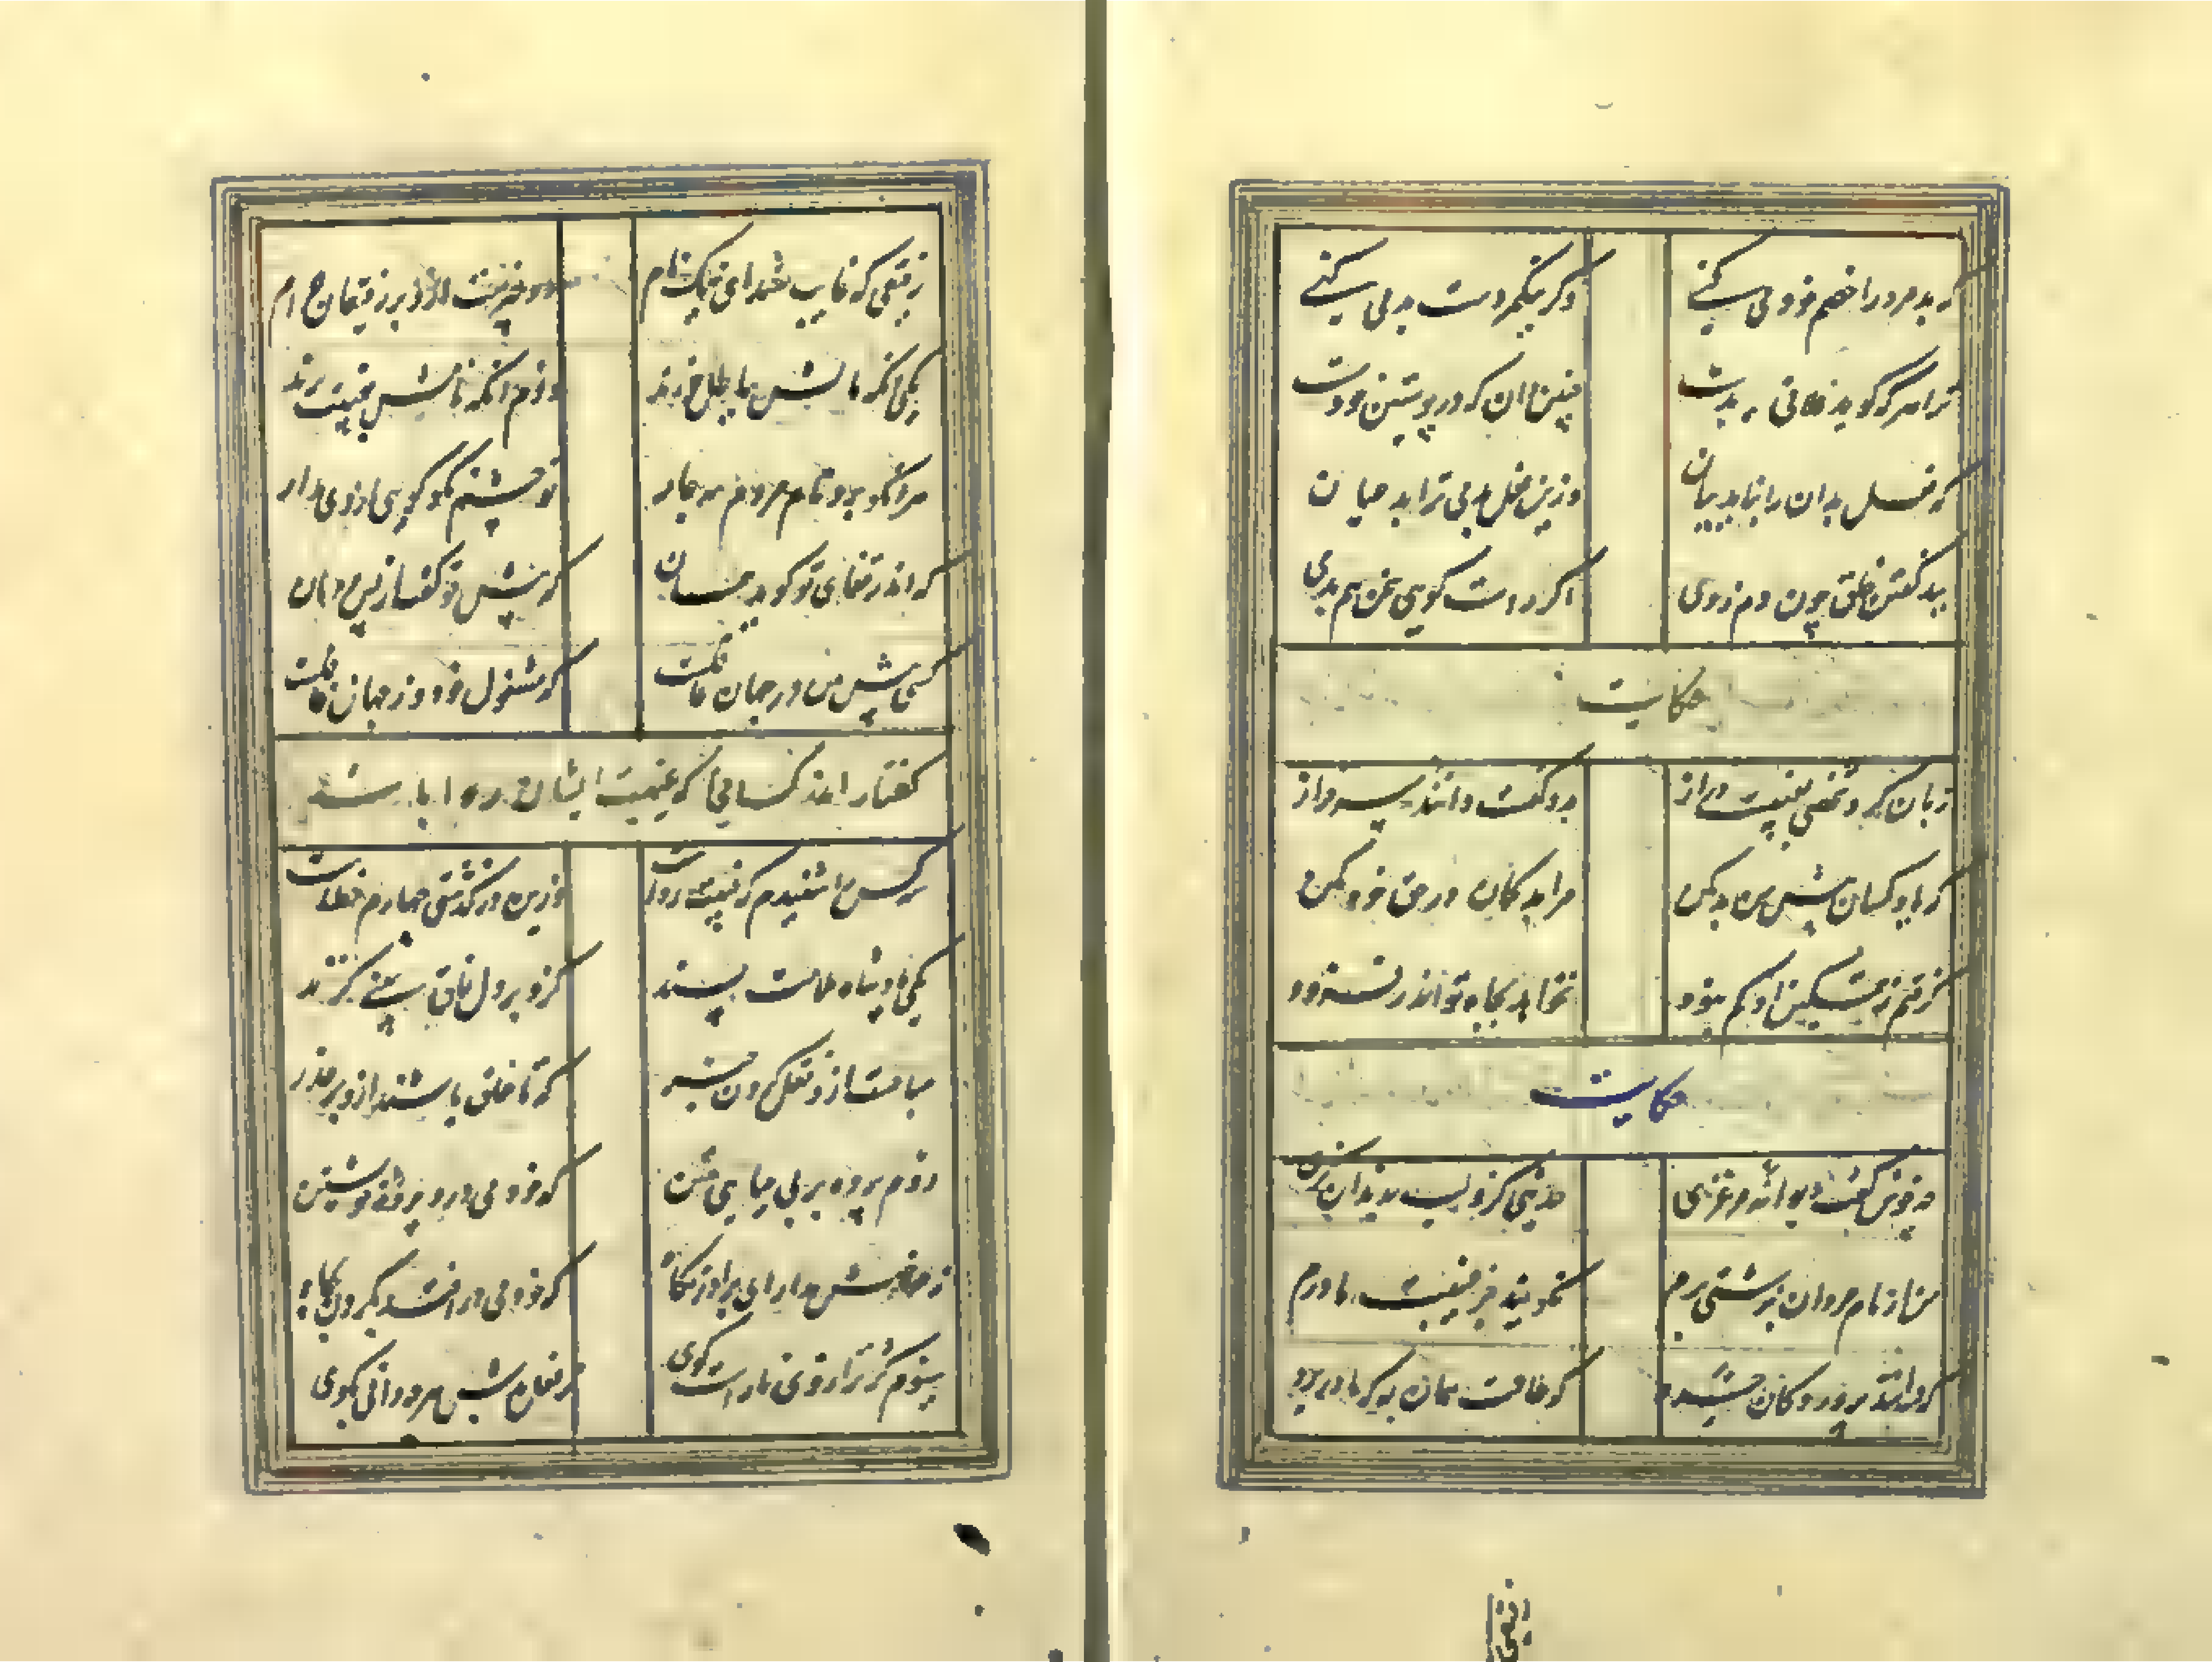 که بد مرد را خصم خود می کنے وگر نیکمردست بد می کنے
ترا هرکه گوید فلانی بدست چنین دان که در پوستین خودست
که فعل بدان را نباید بیان وزین فعل بد می براید عیان
ببد گفتن خلق چون دم زدی اگر راست گویی سخن هم بدی
حکایت
زبان کرد شخصی بغیبت دراز بدو گفت داننده سرفراز
که یاد کسان پیش من بد مکن مرا بدگمان در حق خود مکن
گرفتم ز تمکین او کم ببود نخواهد بجاه تو اندر فزود
حکایت
چه خوش گفت دیوانه مرغزی حدیثی کزو لب بدندان گزی
من ار نام مردان بزشتی برم نگویم بجز غیبت مادرم
که دانند پروردکان خرد که طاعت همان به که مادر برد
رفیقی
رفیقی که غایب شد ای نیک نام دو چیزست ازو بر رفیقان حرام
یکی انکه مالش بباطل خورند دوم انکه نامش بغیبت برند
هرانکو برد نام مردم بعار تو چشم نکو گویی از وی مدار
که اندر قفای تو گوید همان که پیش تو گفت از پس مردمان
کسی پیش من در جهان عاقلست که مشغول خود وز جهان غافلست
گفتار اندر کسانی که غیبت ایشان روا باشد
سه کس را شنیدم که غیبت رواست وزین درگذشتی چهارم خطاست
یکی پادشاه ملامت پسند کزو بر دل خلق بینے گزند
حلالست ازو نقل کردن خبر که تا خلق باشند ازو بر حذر
دوم پرده بر بی حیایی متن که خود می درد پرده خویشتن
ز حوضش مدار ای برادر نگاه که خود می درافتد بگردن بچاه
سیوم کژ ترازوی ناراست گوی ز فعل بدش هرچه دانی بگوی